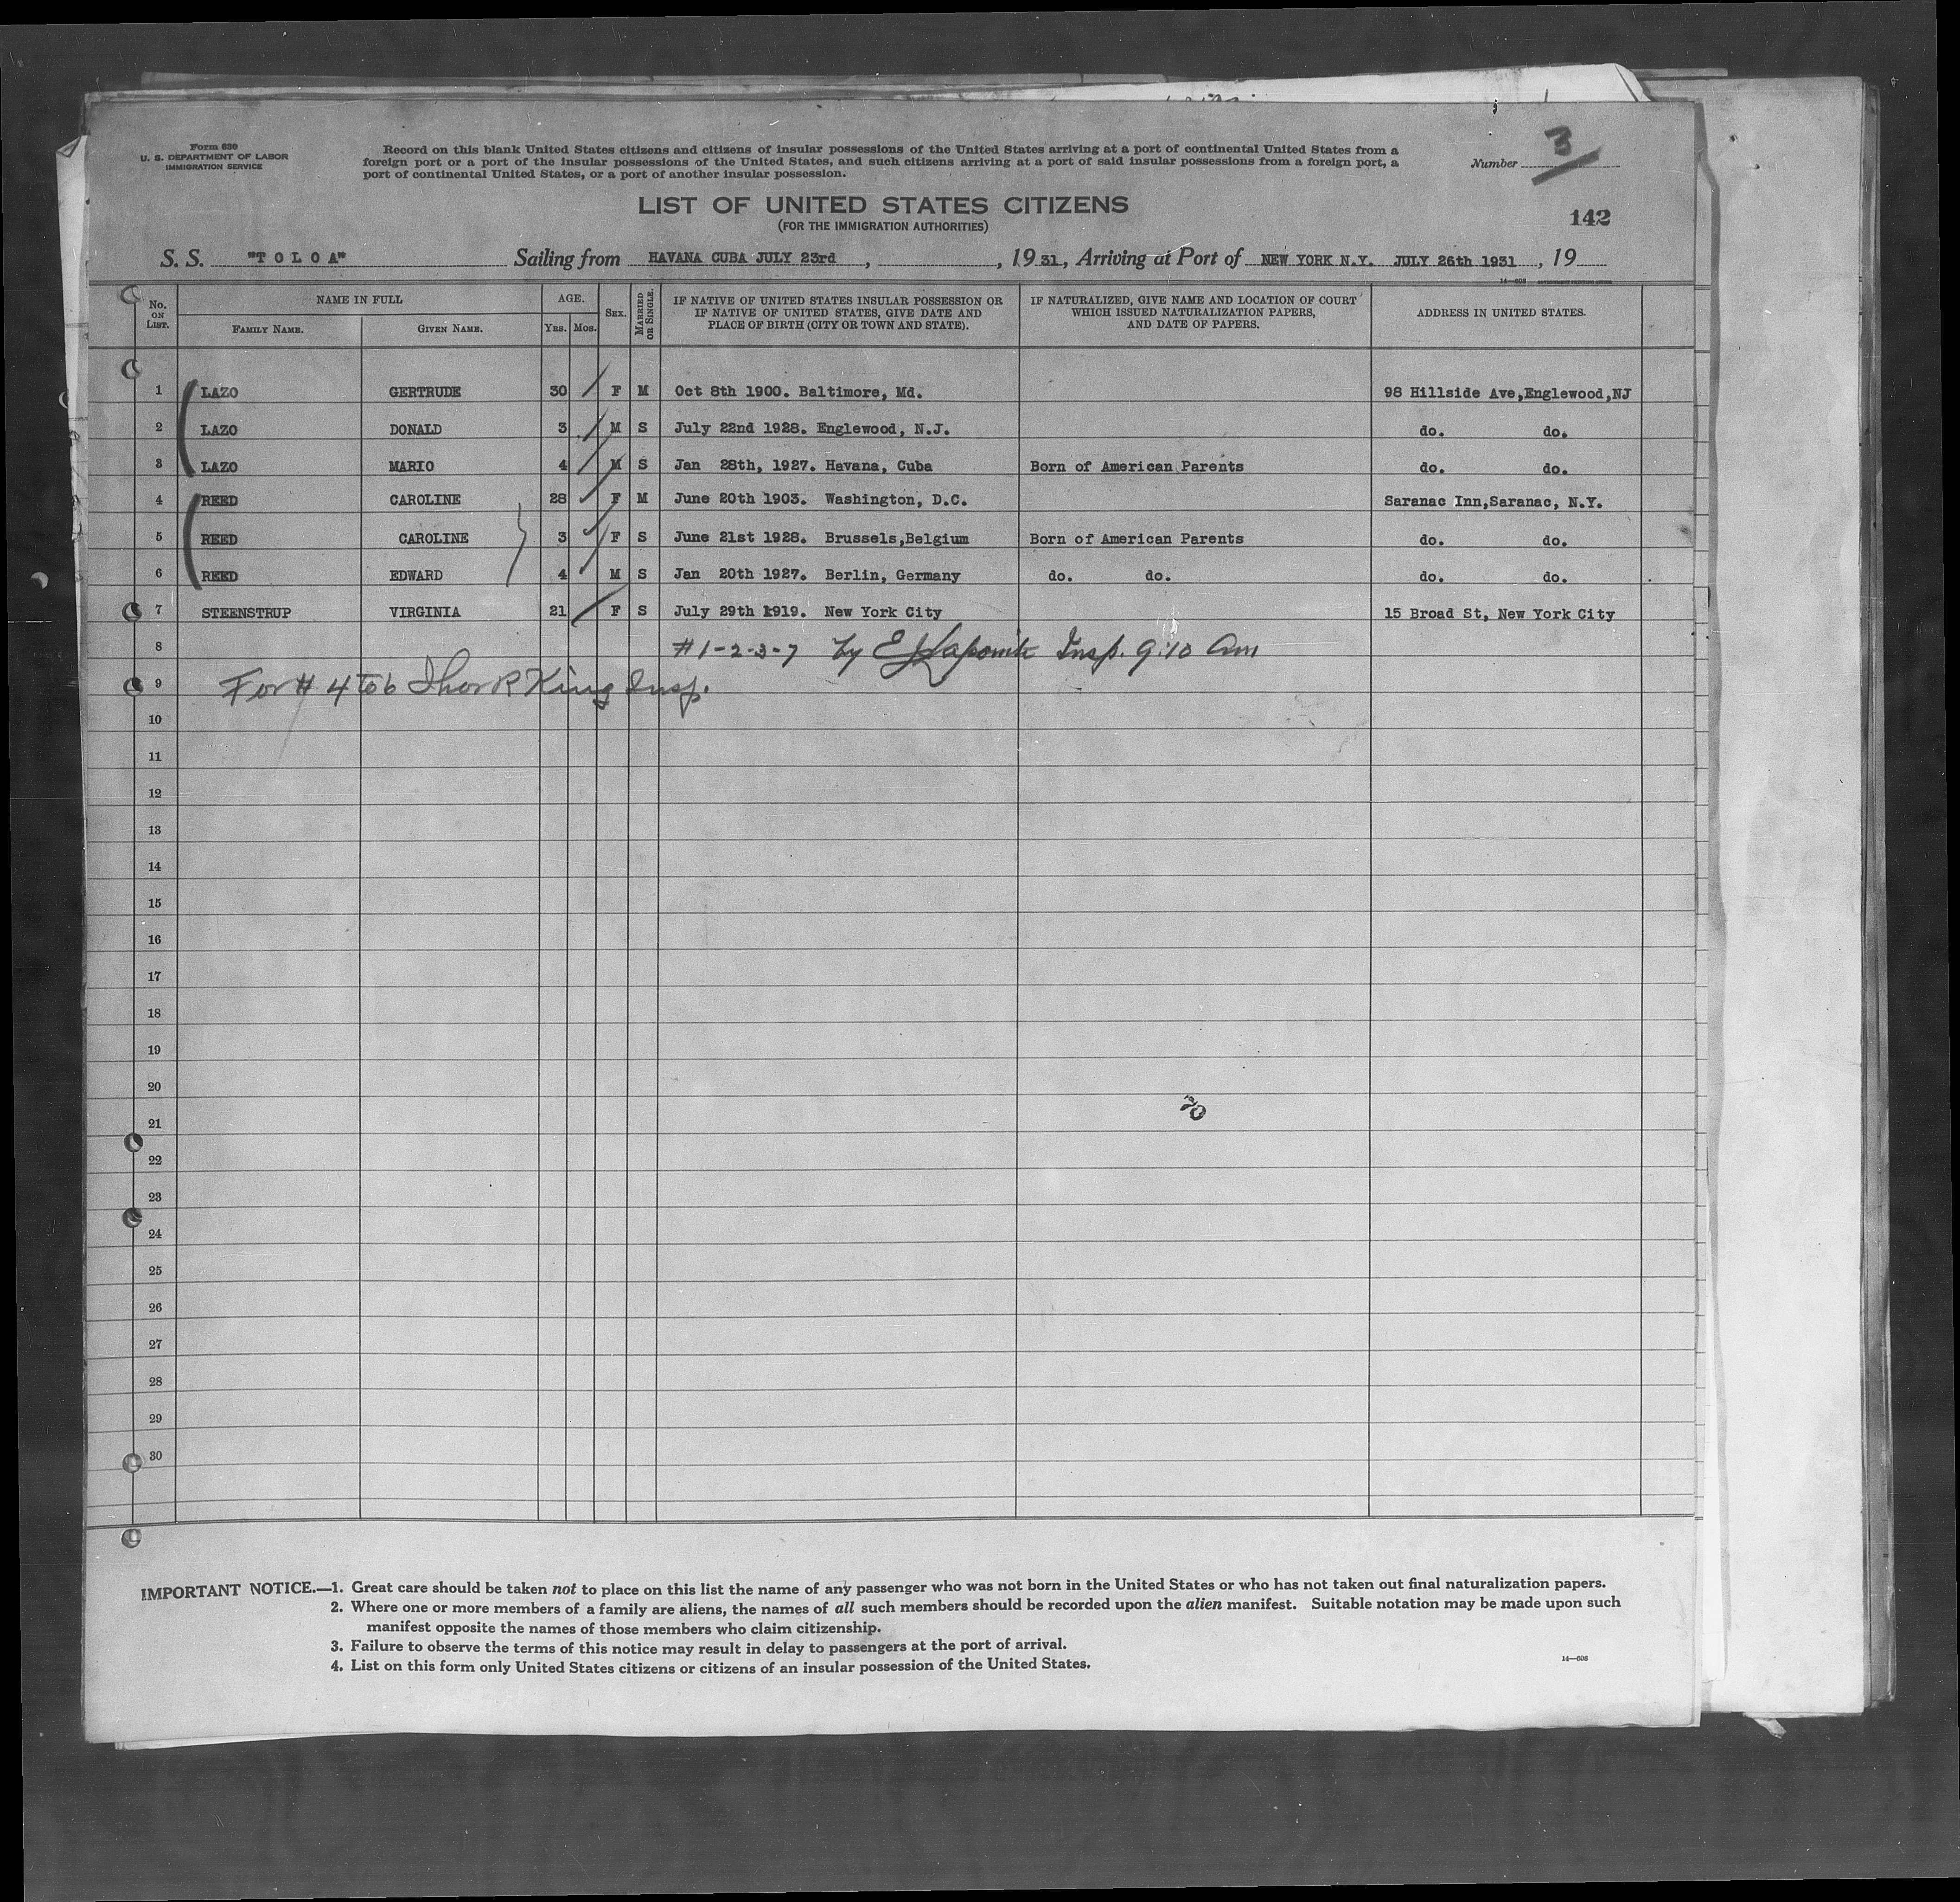 Form 630
U. S. DEPARTMENT OF LABOR
IMMIGRATION SERVICE
Record on this blank United States citizens and citizens of insular possessions of the United States arriving at a port of continental United States from a
foreign port or a port of the insular possessions of the United States, and such citizens arriving at a port of said insular possessions from a foreign port, a
port of continental United States, or a port of another insular possession.
Number 3
LIST OF UNITED STATES CITIZENS
(FOR THE IMMIGRATION AUTHORITIES)
142
S. S. "T O L O A" Sailing from HAVANA CUBA JULY 23rd , , 19 31, Arriving at Port of NEW YORK N.Y. JULY 26th 1931 , 19
No. ON LIST. NAME IN FULL FAMILY NAME. GIVEN NAME. AGE. Yrs. Mos. SEX. MARRIED OR SINGLE. IF NATIVE OF UNITED STATES INSULAR POSSESSION OR IF NATIVE OF UNITED STATES, GIVE DATE AND PLACE OF BIRTH (CITY OR TOWN AND STATE). IF NATURALIZED, GIVE NAME AND LOCATION OF COURT WHICH ISSUED NATURALIZATION PAPERS, AND DATE OF PAPERS. ADDRESS IN UNITED STATES.
1 LAZO GERTRUDE 30 F M Oct 8th 1900. Baltimore, Md. 98 Hillside Ave,Englewood,NJ
2 LAZO DONALD 3 M S July 22nd 1928. Englewood, N.J. do. do.
3 LAZO MARIO 4 M S Jan 28th, 1927. Havana, Cuba Born of American Parents do. do.
4 REED CAROLINE 28 F M June 20th 1903. Washington, D.C. Saranac Inn,Saranac, N.Y.
5 REED CAROLINE 3 F S June 21st 1928. Brussels,Belgium Born of American Parents do. do.
6 REED EDWARD 4 M S Jan 20th 1927. Berlin, Germany do. do. do. do.
7 STEENSTRUP VIRGINIA 21 F S July 29th 1919. New York City 15 Broad St, New York City
8 #1-2-3-7 by Insp. 9:10 am
9 For # 4 to 6 Thor R King Insp.
10
11
12
13
14
15
16
17
18
19
20
70
21
22
23
24
25
26
27
28
29
30
IMPORTANT NOTICE.—1. Great care should be taken not to place on this list the name of any passenger who was not born in the United States or who has not taken out final naturalization papers.
2. Where one or more members of a family are aliens, the names of all such members should be recorded upon the alien manifest. Suitable notation may be made upon such
manifest opposite the names of those members who claim citizenship.
3. Failure to observe the terms of this notice may result in delay to passengers at the port of arrival.
4. List on this form only United States citizens or citizens of an insular possession of the United States.
14—608